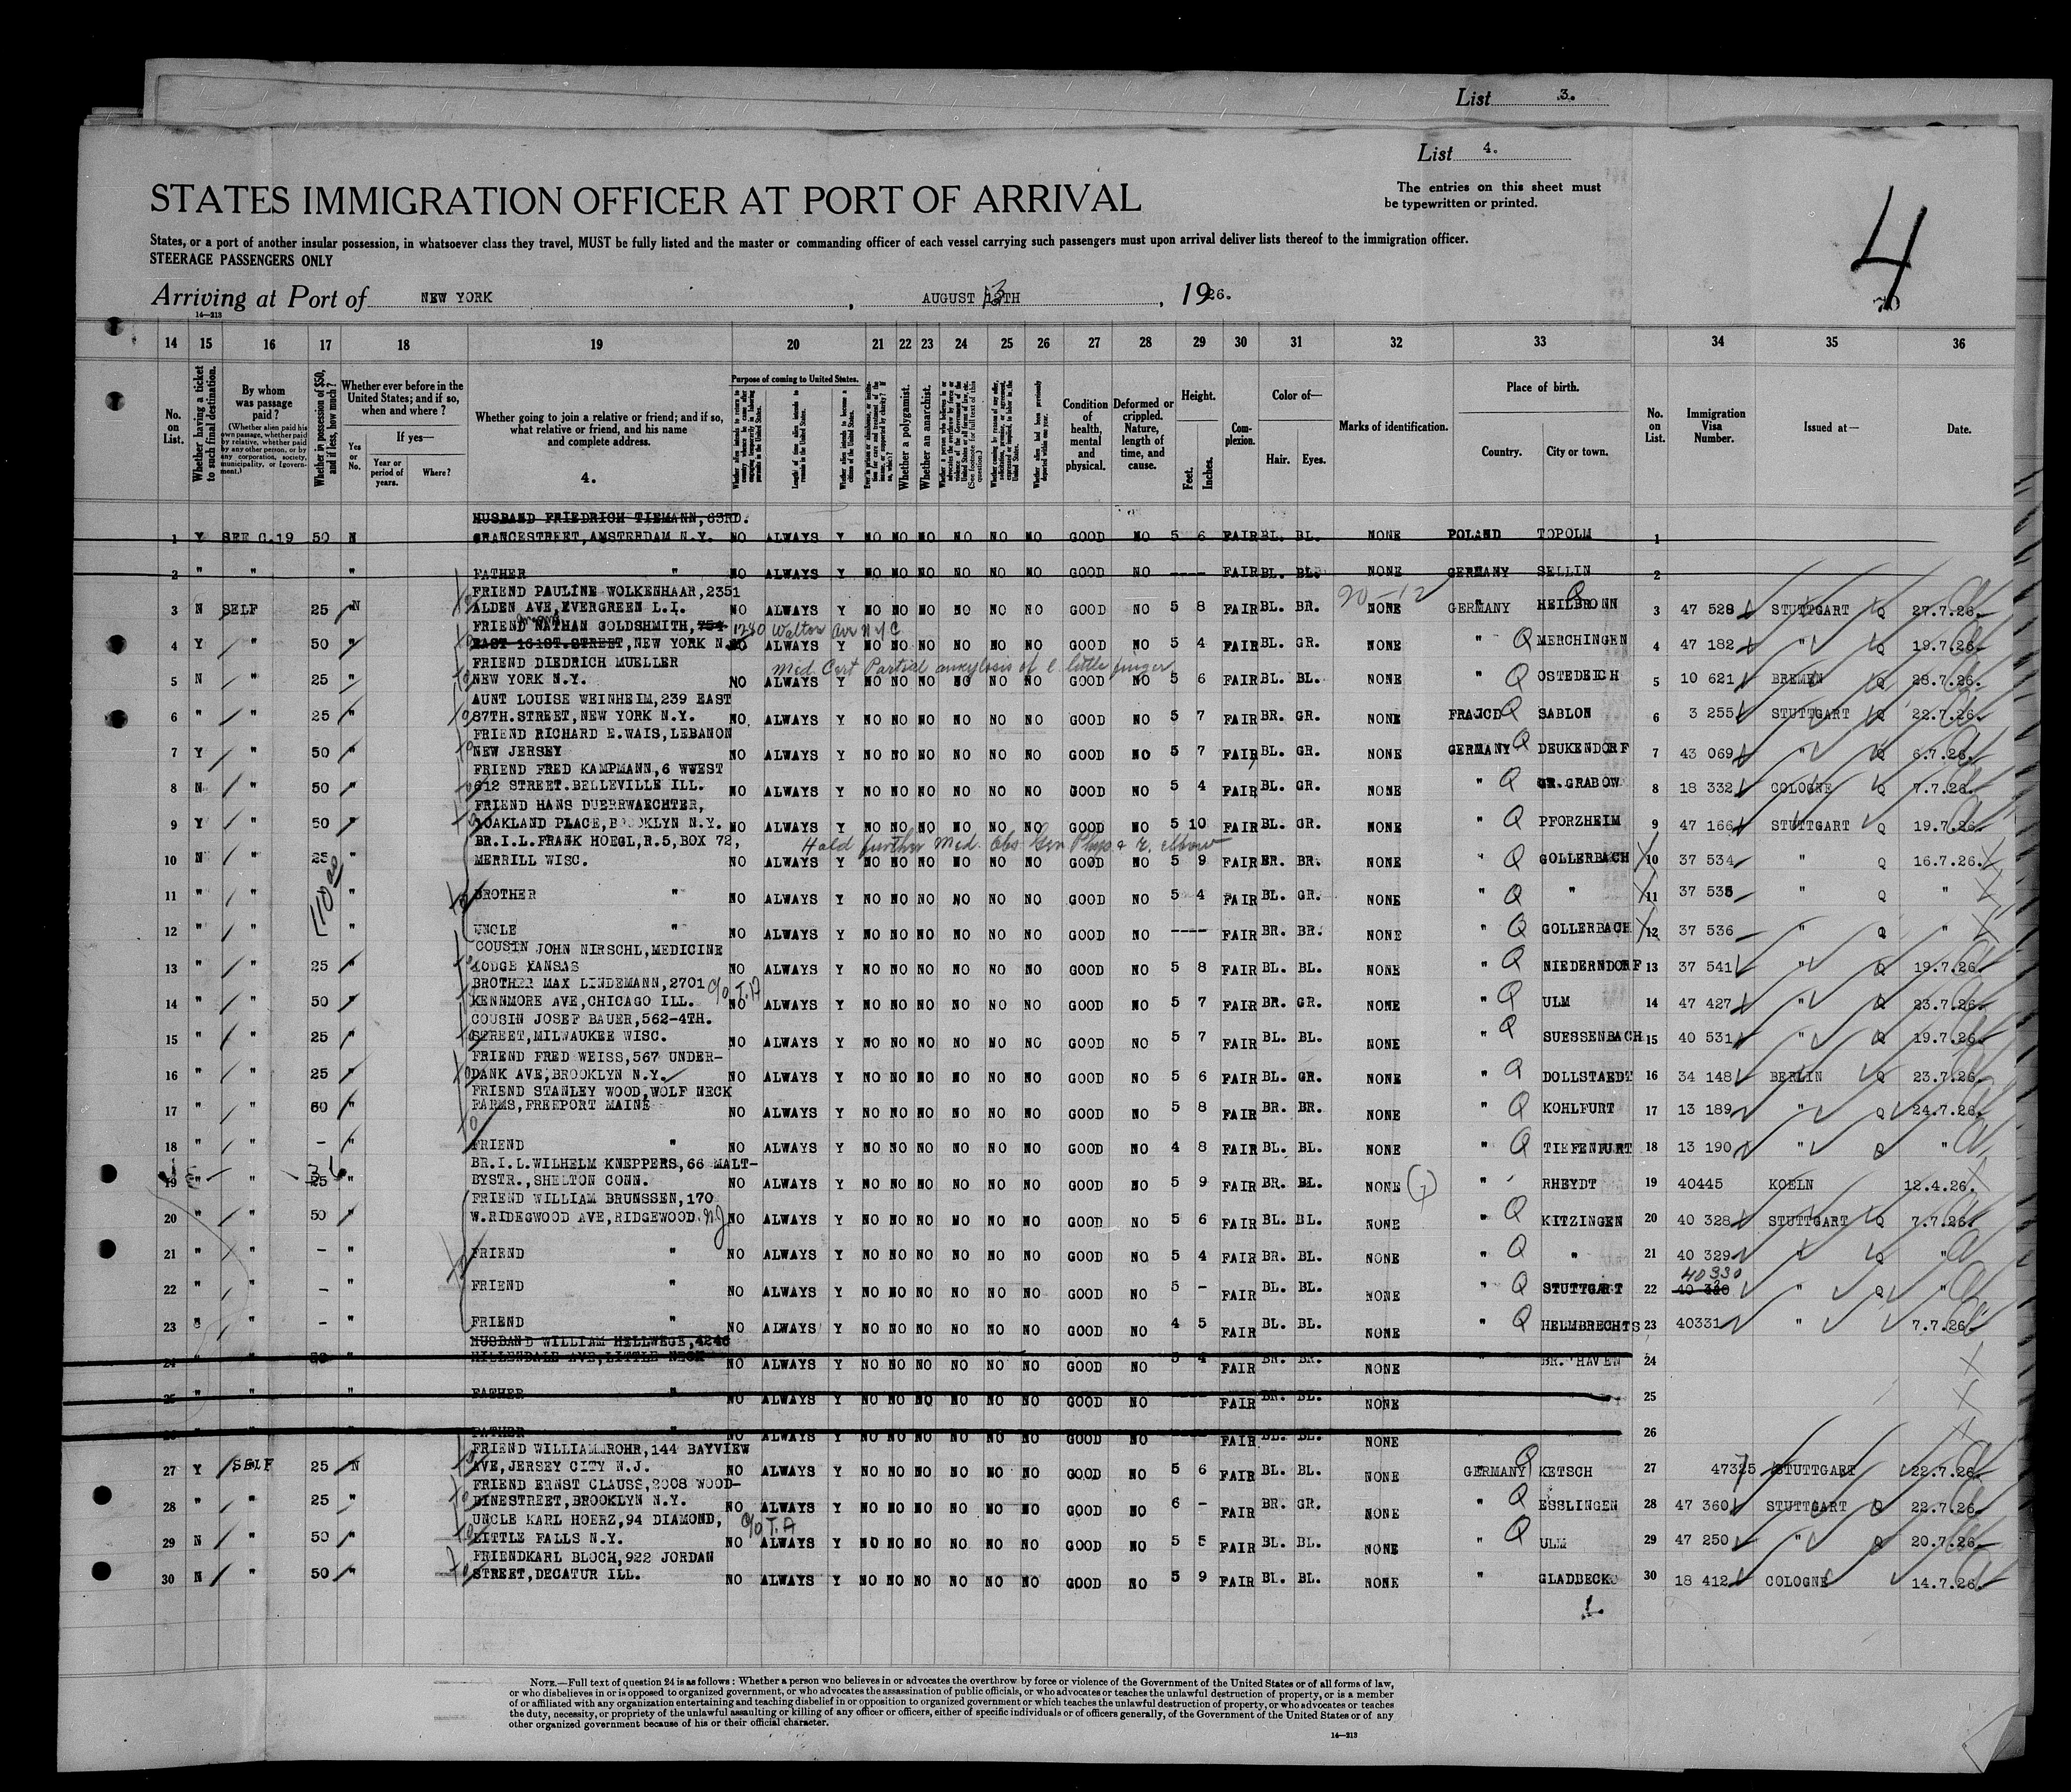 List 3.
List 4.
STATES IMMIGRATION OFFICER AT PORT OF ARRIVAL
The entries on this sheet must
be typewritten or printed.
4
States, or a port of another insular possession, in whatsoever class they travel, MUST be fully listed and the master or commanding officer of each vessel carrying such passengers must upon arrival deliver lists thereof to the immigration officer.
STEERAGE PASSENGERS ONLY
Arriving at Port of NEW YORK, AUGUST 13TH, 1926.
14—213
14 15 16 17 18 19 20 21 22 23 24 25 26 27 28 29 30 31 32 33 34 35 36
No. on List.
Whether having a ticket to such final destination.
By whom was passage paid?
(Whether alien paid his own passage, whether paid by relative, whether paid by any other person, or by any corporation, society, municipality, or government.)
Whether in possession of $50, and if less, how much?
Whether ever before in the United States; and if so, when and where?
Yes or No.
If yes—
Year or period of years.
Where?
Whether going to join a relative or friend; and if so, what relative or friend, and his name and complete address.
4.
Purpose of coming to United States.
Length of time alien intends to remain in the United States.
Whether alien intends to become a citizen of the United States.
Whether a polygamist.
Whether an anarchist.
Whether alien had been previously deported within one year.
Condition of health, mental and physical.
Deformed or crippled. Nature, length of time, and cause.
Height.
Feet.
Inches.
Complexion.
Color of—
Hair.
Eyes.
Marks of identification.
Place of birth.
Country.
City or town.
No. on List.
Immigration Visa Number.
Issued at—
Date.
HUSBAND FRIEDRICH TIEMANN, 63RD.
1 Y SEE C.19 50 N GRANCESTREET, AMSTERDAM N.Y. NO ALWAYS Y NO NO NO NO NO NO GOOD NO 5 6 FAIR BL. BL. NONE POLAND TOPOLM 1
2 " " " FATHER " NO ALWAYS Y NO NO NO NO NO NO GOOD NO ---- FAIR BL. BL. NONE GERMANY SELLIN 2
FRIEND PAULINE WOLKENHAAR, 2351
20-12
3 N SELF 25 N ALDEN AVE, EVERGREEN L.I. NO ALWAYS Y NO NO NO NO NO NO GOOD NO 5 8 FAIR BL. BR. NONE GERMANY HEILBRONN 3 47 528 STUTTGART Q 27.7.26.
FRIEND NATHAN GOLDSHMITH, 754 1240 Walton Ave N Y C
4 Y " 50 " EAST 161ST. STREET, NEW YORK N.Y. NO ALWAYS Y NO NO NO NO NO NO GOOD NO 5 4 FAIR BL. GR. NONE " Q MERCHINGEN 4 47 182 " Q 19.7.26.
FRIEND DIEDRICH MUELLER Med Cert Partial ankylosis of l. little finger
5 N " 25 " NEW YORK N.Y. NO ALWAYS Y NO NO NO NO NO NO GOOD NO 5 6 FAIR BL. BL. NONE " Q OSTEDEICH 5 10 621 BREMEN Q 28.7.26.
AUNT LOUISE WEINHEIM, 239 EAST
6 " " 25 " 87TH. STREET, NEW YORK N.Y. NO ALWAYS Y NO NO NO NO NO NO GOOD NO 5 7 FAIR BR. GR. NONE FRAJCD Q SABLON 6 3 255 STUTTGART Q 22.7.26.
FRIEND RICHARD E. WAIS, LEBANON
7 Y " 50 " NEW JERSEY NO ALWAYS Y NO NO NO NO NO NO GOOD NO 5 7 FAIR BL. GR. NONE GERMANY Q DEUKENDORF 7 43 069 " Q 6.7.26.
FRIEND FRED KAMPMANN, 6 WWEST
8 N " 50 " 612 STREET. BELLEVILLE ILL. NO ALWAYS Y NO NO NO NO NO NO GOOD NO 5 4 FAIR BL. GR. NONE " Q GR. GRABOW 8 18 332 COLOGNE Q 7.7.26.
FRIEND HANS DUERRWAECHTER,
9 Y " 50 " OAKLAND PLACE, BROOKLYN N.Y. NO ALWAYS Y NO NO NO NO NO NO GOOD NO 5 10 FAIR BL. GR. NONE " Q PFORZHEIM 9 47 166 STUTTGART Q 19.7.26.
BR.I.L. FRANK HOEGL, R.5, BOX 72, Hold further Med. Obs. Gen Phys & E. elbow
10 N " 25 " MERRILL WISC. NO ALWAYS Y NO NO NO NO NO NO GOOD NO 5 9 FAIR BR. BR. NONE " Q GOLLERBACH 10 37 534 " Q 16.7.26.
110.00
11 " " " BROTHER " NO ALWAYS Y NO NO NO NO NO NO GOOD NO 5 4 FAIR BL. GR. NONE " Q " 11 37 535 " Q "
12 " " " UNCLE " NO ALWAYS Y NO NO NO NO NO NO GOOD NO ---- FAIR BR. BR. NONE " Q GOLLERBACH 12 37 536 " Q "
COUSIN JOHN NIRSCHL, MEDICINE
13 " " 25 " LODGE KANSAS NO ALWAYS Y NO NO NO NO NO NO GOOD NO 5 8 FAIR BL. BL. NONE " Q NIEDERNDORF 13 37 541 " Q 19.7.26.
BROTHER MAX LINDEMANN, 2701 c/o T.A
14 " " 50 " KENNMORE AVE, CHICAGO ILL. NO ALWAYS Y NO NO NO NO NO NO GOOD NO 5 7 FAIR BR. GR. NONE " Q ULM 14 47 427 " Q 23.7.26.
COUSIN JOSEF BAUER, 562-4TH.
15 " " 25 " STREET, MILWAUKEE WISC. NO ALWAYS Y NO NO NO NO NO NO GOOD NO 5 7 FAIR BL. BL. NONE " Q SUESSENBACH 15 40 531 " Q 19.7.26.
FRIEND FRED WEISS, 567 UNDER-
16 " " 25 " DANK AVE, BROOKLYN N.Y. NO ALWAYS Y NO NO NO NO NO NO GOOD NO 5 6 FAIR BL. GR. NONE " Q DOLLSTAEDT 16 34 148 BERLIN Q 23.7.26.
FRIEND STANLEY WOOD, WOLF NECK
17 " " 60 " FARMS, FREEPORT MAINE NO ALWAYS Y NO NO NO NO NO NO GOOD NO 5 8 FAIR BR. BR. NONE " Q KOHLFURT 17 13 189 " Q 24.7.26.
18 " " - " FRIEND " NO ALWAYS Y NO NO NO NO NO NO GOOD NO 4 8 FAIR BL. BL. NONE " Q TIEFENFURT 18 13 190 " Q "
BR.I.L. WILHELM KNEPPERS, 66 MALT-
19 " " 25 36 " BYSTR., SHELTON CONN. NO ALWAYS Y NO NO NO NO NO NO GOOD NO 5 9 FAIR BR. BL. NONE " RHEYDT 19 40445 KOELN 12.4.26.
FRIEND WILLIAM BRUNSSEN, 170
20 " " 50 " W. RIDEGWOOD AVE, RIDGEWOOD. NJ NO ALWAYS Y NO NO NO NO NO NO GOOD NO 5 6 FAIR BL. BL. NONE " Q KITZINGEN 20 40 328 STUTTGART Q 7.7.26.
21 " " - " FRIEND " NO ALWAYS Y NO NO NO NO NO NO GOOD NO 5 4 FAIR BR. BL. NONE " Q " 21 40 329 " Q "
40330
22 " " - " FRIEND " NO ALWAYS Y NO NO NO NO NO NO GOOD NO 5 - FAIR BL. BL. NONE " Q STUTTGART 22 " Q "
23 " " - " FRIEND " NO ALWAYS Y NO NO NO NO NO NO GOOD NO 4 5 FAIR BL. BL. NONE " Q HELMBRECHTS 23 40331 " 7.7.26.
HUSBAND WILLIAM HELLWEGE, 4246
24 " " 50 " HILLENDALE AVE, LITTLE NECK NO ALWAYS Y NO NO NO NO NO NO GOOD NO 5 4 FAIR BR. BR. NONE " BR. HAVEN 24
25 " " " FATHER " NO ALWAYS Y NO NO NO NO NO NO GOOD NO ---- FAIR BR. BL. NONE " " 25
26 " " " FATHER " NO ALWAYS Y NO NO NO NO NO NO GOOD NO ---- FAIR BL. BL. NONE " " 26
FRIEND WILLIAM ROHR, 144 BAYVIEW
27 Y SELF 25 N AVE, JERSEY CITY N.J. NO ALWAYS Y NO NO NO NO NO NO GOOD NO 5 6 FAIR BL. BL. NONE GERMANY Q KETSCH 27 47325 STUTTGART 22.7.26.
FRIEND ERNST CLAUSS, 2008 WOOD-
28 " " 25 " BINESTREET, BROOKLYN N.Y. NO ALWAYS Y NO NO NO NO NO NO GOOD NO 6 - FAIR BR. GR. NONE " Q ESSLINGEN 28 47 360 STUTTGART Q 22.7.26.
UNCLE KARL HOERZ, 94 DIAMOND, c/o T.A
29 N " 50 " LITTLE FALLS N.Y. NO ALWAYS Y NO NO NO NO NO NO GOOD NO 5 5 FAIR BL. BL. NONE " Q ULM 29 47 250 " Q 20.7.26.
FRIENDKARL BLOCH, 922 JORDAN
30 N " 50 " STREET, DECATUR ILL. NO ALWAYS Y NO NO NO NO NO NO GOOD NO 5 9 FAIR BL. BL. NONE " GLADBECK 30 18 412 COLOGNE 14.7.26.
NOTE.—Full text of question 24 is as follows: Whether a person who believes in or advocates the overthrow by force or violence of the Government of the United States or of all forms of law,
or who disbelieves in or is opposed to organized government, or who advocates the assassination of public officials, or who advocates or teaches the unlawful destruction of property, or is a member
of or affiliated with any organization entertaining and teaching disbelief in or opposition to organized government or which teaches the unlawful destruction of property, or who advocates or teaches
the duty, necessity, or propriety of the unlawful assaulting or killing of any officer or officers, either of specific individuals or of officers generally, of the Government of the United States or of any
other organized government because of his or their official character.
14—213